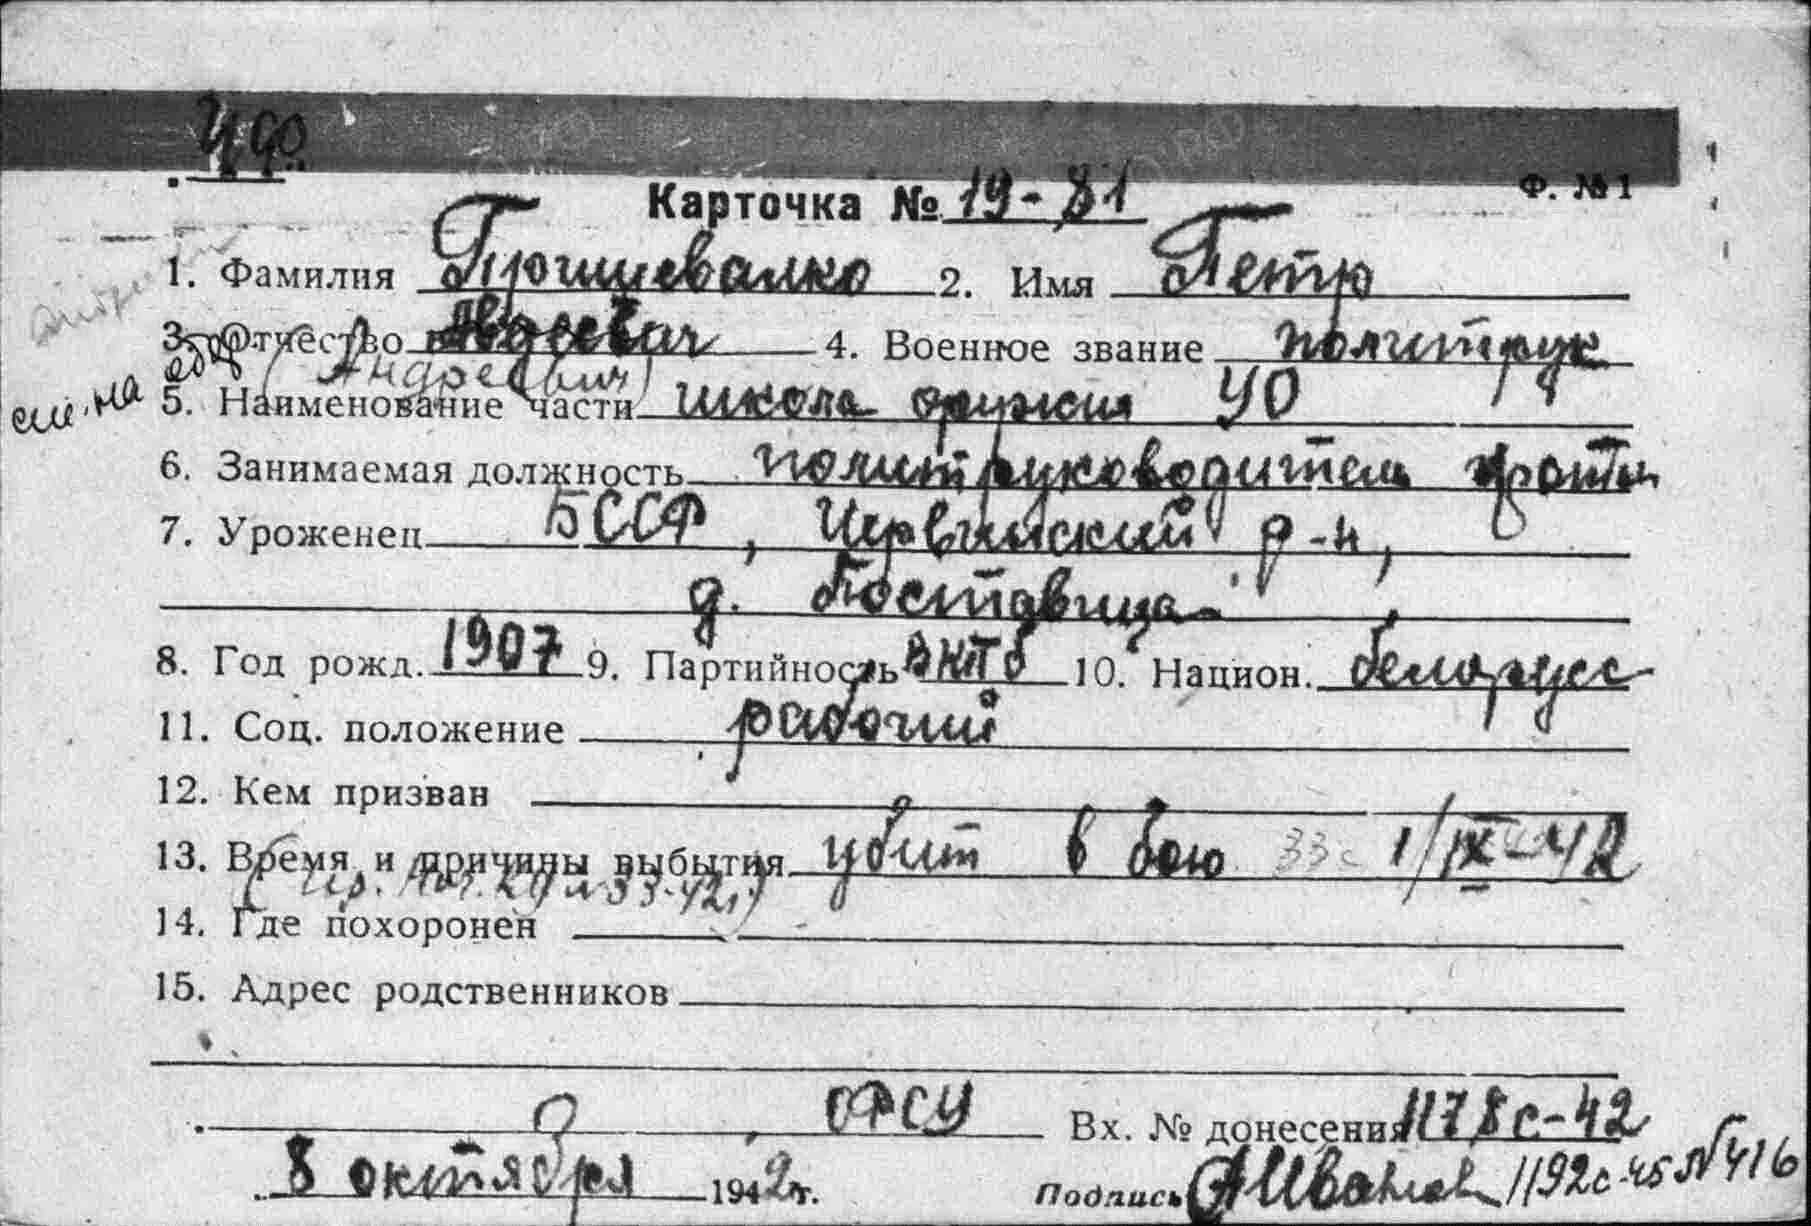 Карточка № 19-81 Ф. № 1
1. Фамилия 2. Имя Петр
3. Отчество Авдеевич 4. Военное звание политрук
(Андреевич)
см. на
5. Наименование части школа оружия УО
6. Занимаемая должность политруководитель роты
7. Уроженец БССР, Червинский р-н,
д. Поставица
8. Год рожд. 1907 9. Партийность ВКПб 10. Национ. белорусс
11. Соц. положение рабочий
12. Кем призван
13. Время и причины выбытия убит в бою 33с 1/IX-42
14. Где похоронен
15. Адрес родственников
ОФСУ Вх. № донесения 1178с-42
8 октября 1942 г. Подпись 1192с-45 № 416